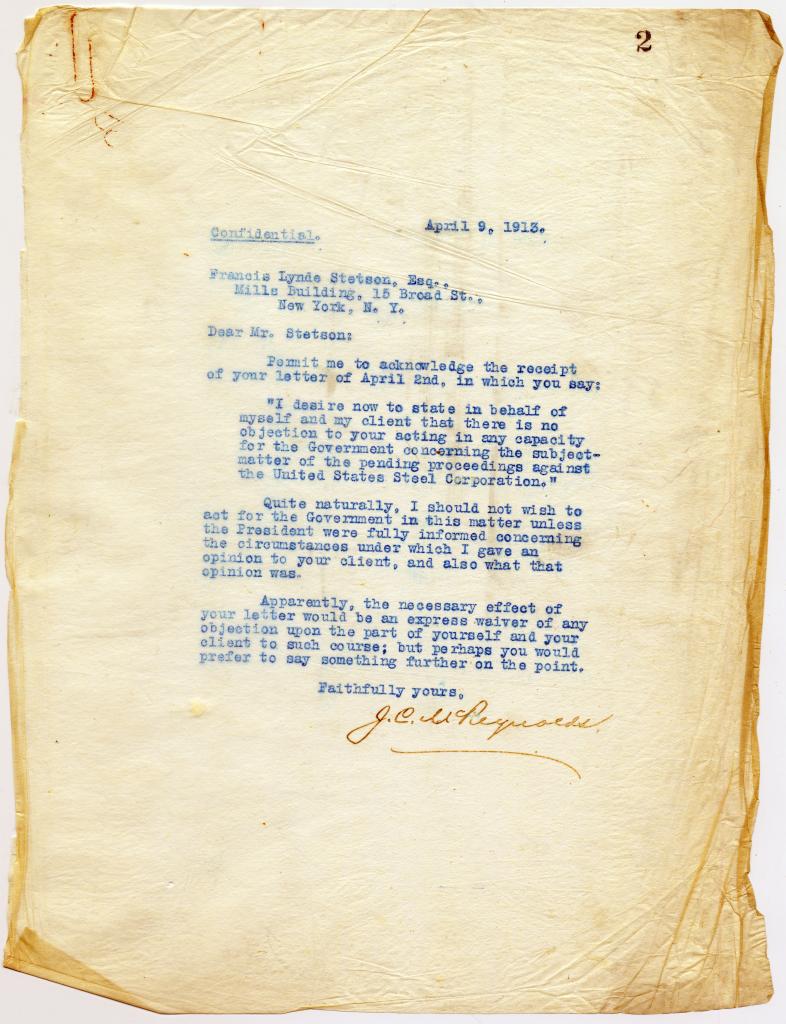 2
April 9, 1913.
Confidential.
Francis Lynde Stetson, Esq.,
Mills Building, 15 Broad St.,
New York, N. Y.
Dear Mr. Stetson:
Permit me to acknowledge the receipt
of your letter of April 2nd, in which you say:
"I desire now to state in behalf of
myself and my client that there is no
objection to your acting in any capacity
for the Government concerning the subject-
matter of the pending proceedings against
the United States Steel Corporation."
Quite naturally, I should not wish to
act for the Government in this matter unless
the President were fully informed concerning
the circumstances under which I gave an
opinion to your client, and also what that
opinion was.
Apparently, the necessary effect of
your letter would be an express waiver of any
objection upon the part of yourself and your
client to such course; but perhaps you would
prefer to say something further on the point.
Faithfully yours,
J. C. McReynolds.